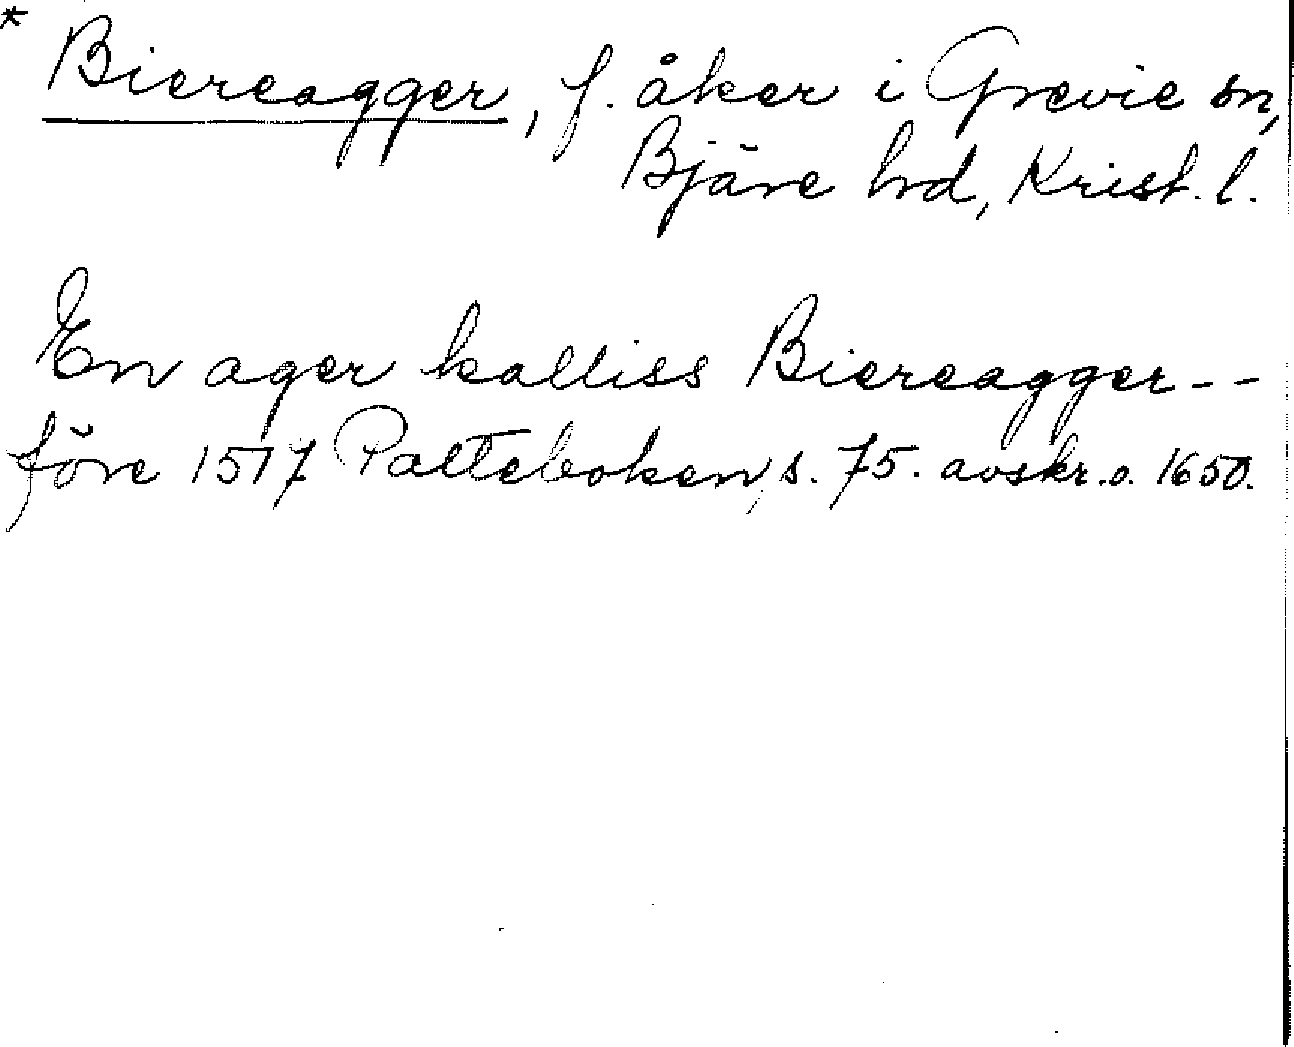 * Biereagger, f. åker i Grevie sn,
Bjäre hd, Krist. l.
En ager kalliss Biereagger - -
före 1517 Palteboken, s. 75. avskr. o. 1650.